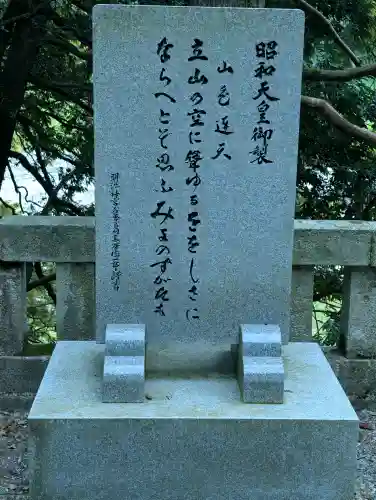 昭和天皇御製
山色連天
立山の空に聳ゆるををしさに
ならへとそ思ふみよのすがたも